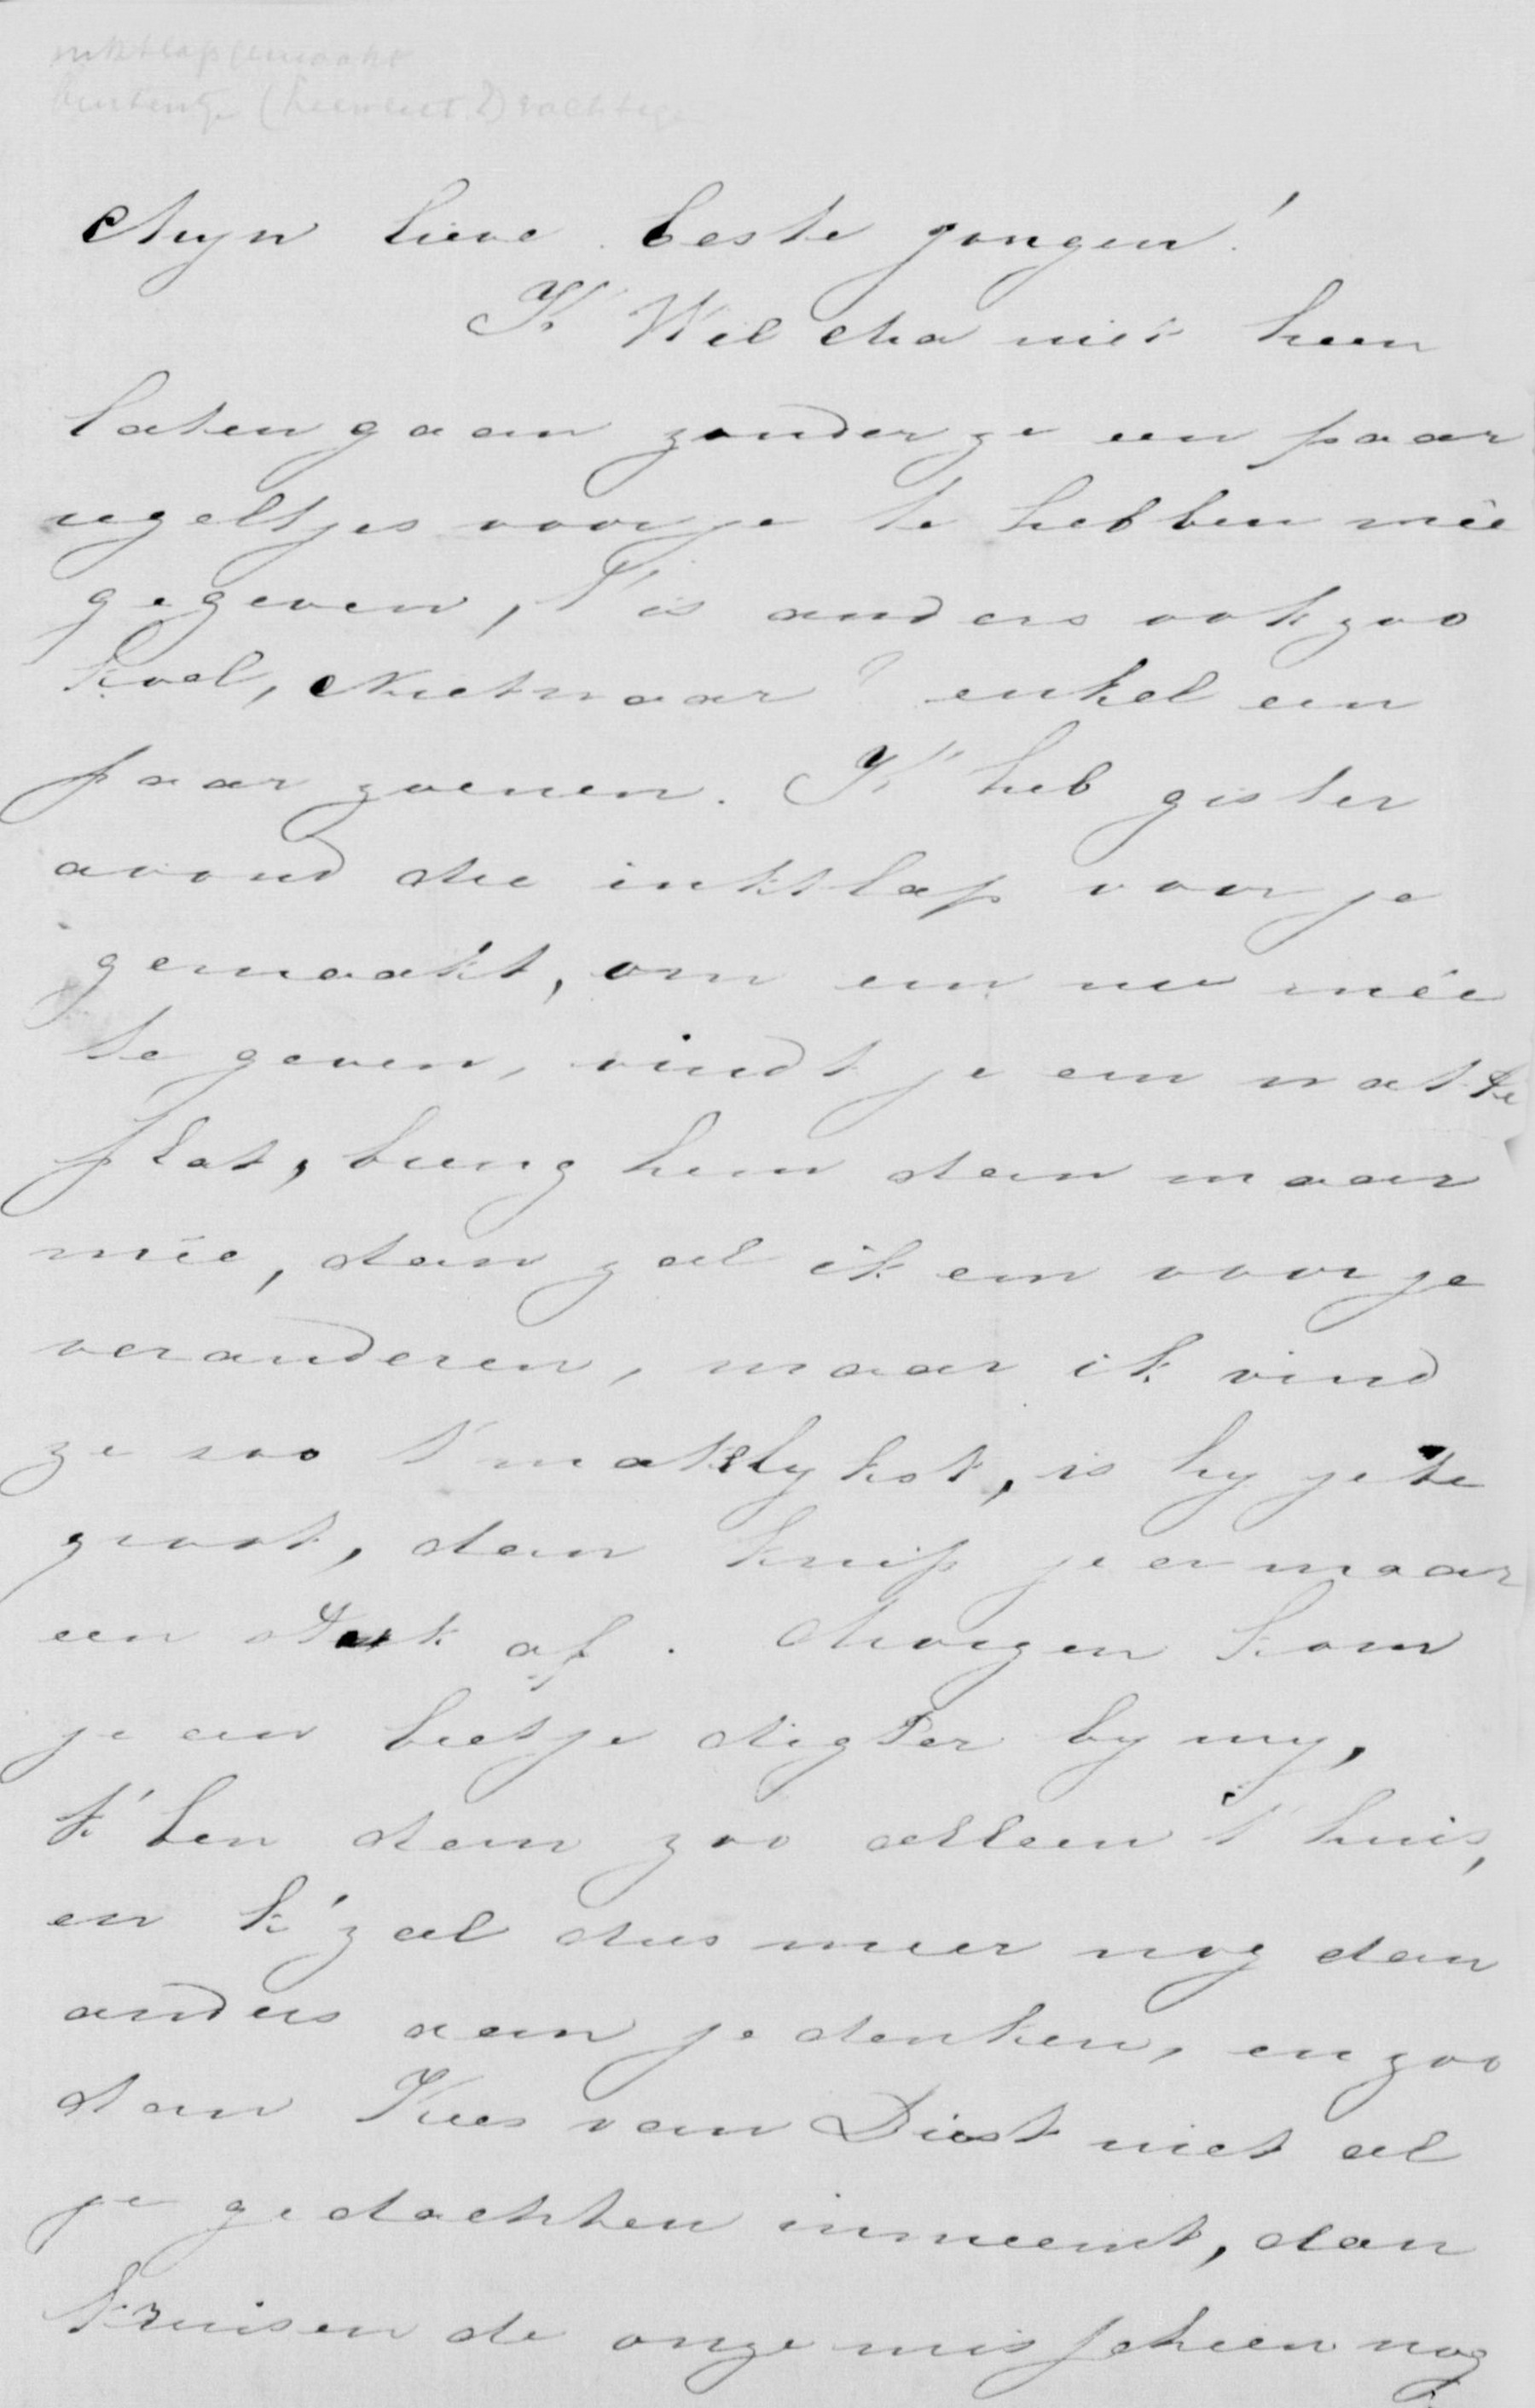 inktlap gemaakt
Mijn lieve beste jongen!
K' Wil Ma niet heen
laten gaan zonder ze een paar
regeltjes voor je te hebben mêe
gegeven, T' is anders ook zoo
koel, Nietwaar? enkel een
paar zoenen. K' heb gister
avond die inktlap voor je
gemaakt, om em nu mêe
te geven, vindt je em wat te
plat, breng hem dan maar
mêe, dan zal ik em voor je
veranderen, maar ik vind
ze zoo t' maklykst, is hy je te
groot, dan knip je er maar
een stuk af. Morgen kom
je een beetje digter by my,
k' ben dan zoo alleen t' huis,
en k' zal dus meer nog dan
anders aan je denken, en zoo
dan Kees van Diest niet al
je gedachten inneemt, dan
kruisen de onze misschien nog